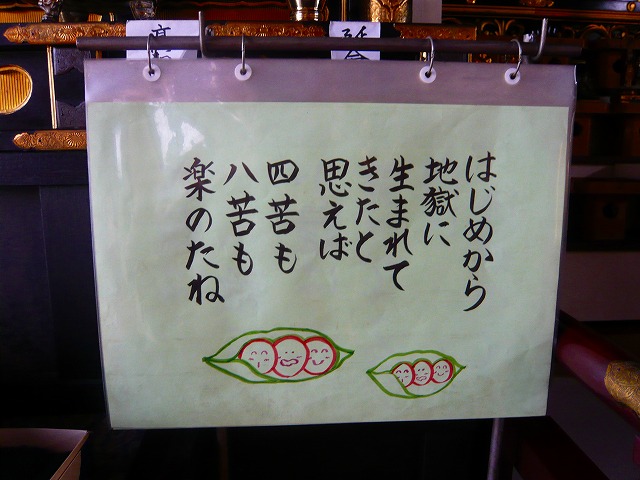 はじめから
地獄に
生まれて
きたと
思えば
四苦も
八苦も
楽のたね